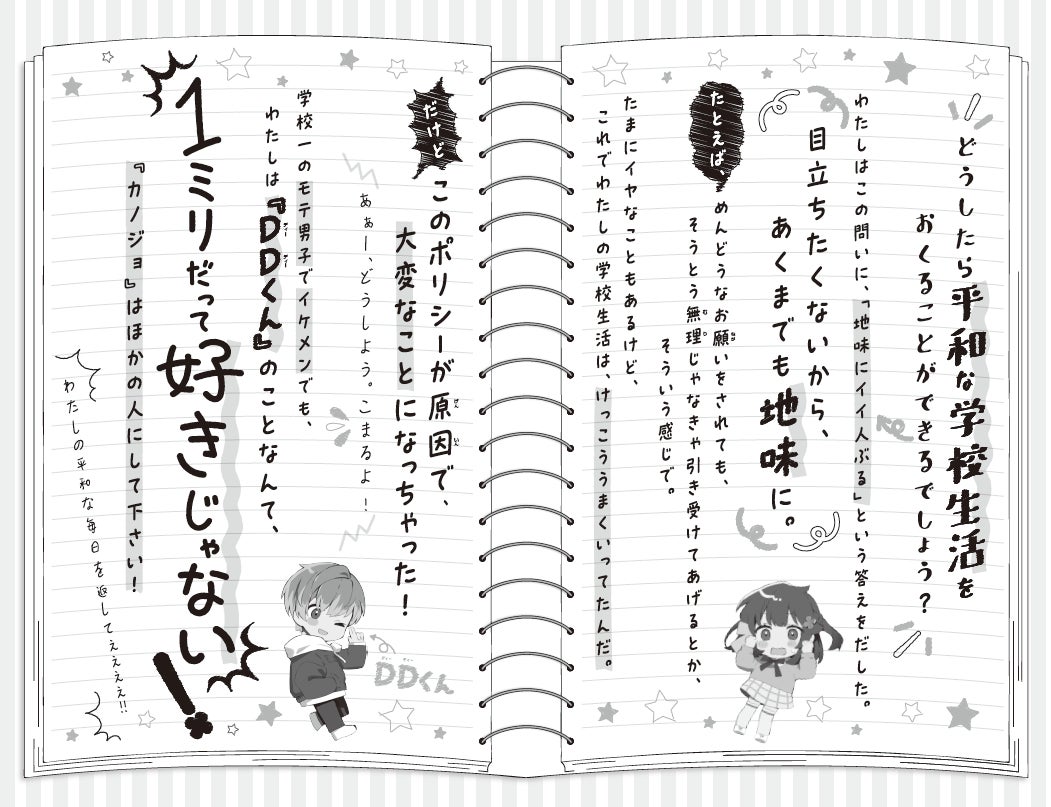 どうしたら平和な学校生活を
おくることができるでしょう？
わたしはこの問いに、「地味にイイ人ぶる」という答えをだした。
目立ちたくないから、
あくまでも地味に。
たとえば、
めんどうなお願いをされても、
そうとう無理じゃなきゃ引き受けてあげるとか、
そういう感じで。
たまにイヤなこともあるけど、
これでわたしの学校生活は、けっこううまくいってたんだ。
だけど
このポリシーが原因で、
大変なことになっちゃった！
あぁー、どうしよう。こまるよ！
学校一のモテ男子でイケメンでも、
わたしは『DDくん』のことなんて、
1ミリだって好きじゃない！
『カノジョ』はほかの人にして下さい！
わたしの平和な毎日を返してぇぇぇぇ!!
DDくん